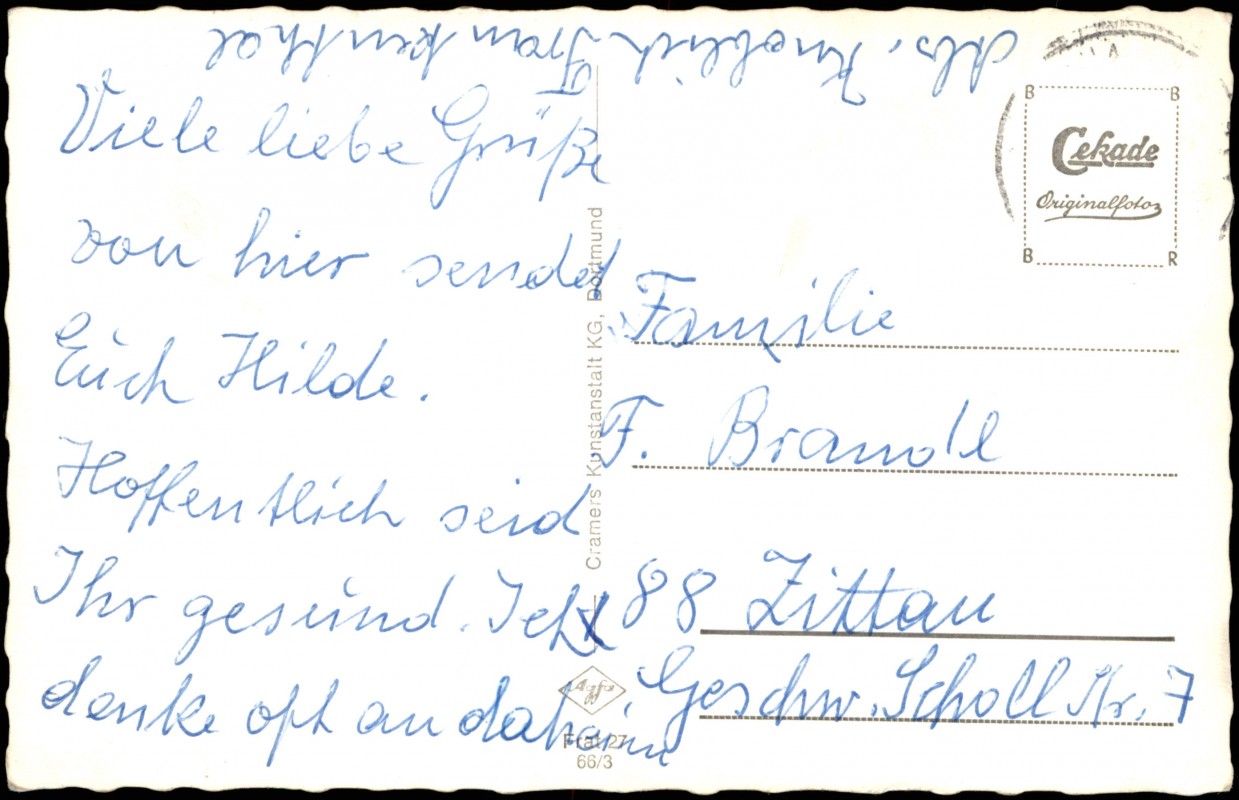 Abs. Knoblich Frankenthal
Viele liebe Grüße
von hier sendet
Euch Hilde.
Hoffentlich seid
Ihr gesund. Ich
denke oft an daheim
Cramers Kunstanstalt KG, Dortmund
Agfa
Frat 27
66/3
B B
Cekade
Originalfoto
B R
Familie
F. Brandl
88 Zittau
Geschw. Scholl Str. 7